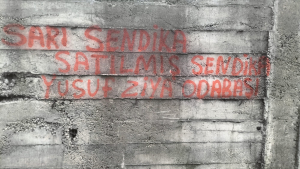 SARI SENDİKA
SATILMIŞ SENDİKA
YUSUF ZİYA ODABAŞI